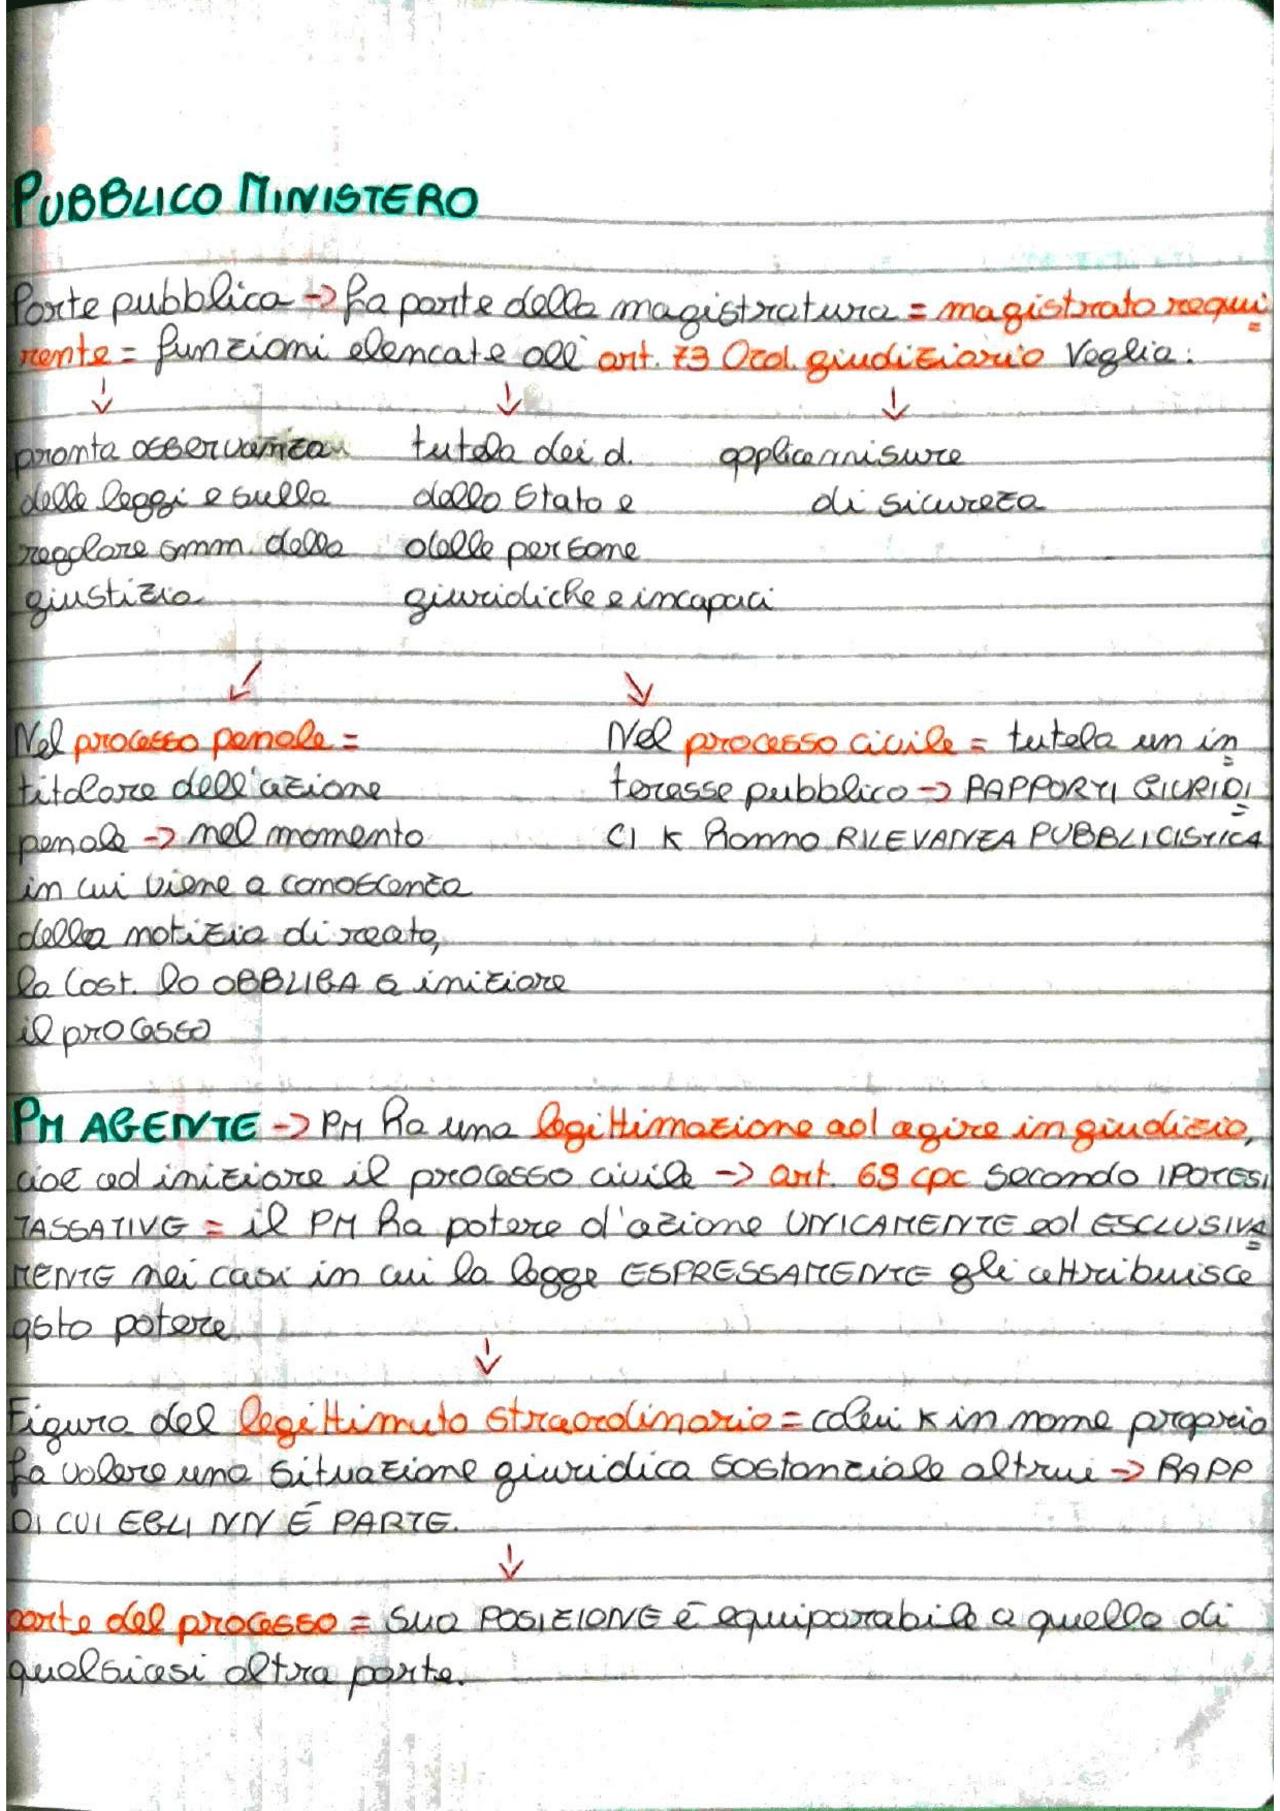 PUBBLICO MINISTERO
Parte pubblica -> fa parte della magistratura = magistrato requi
rente = funzioni elencate all' art. 73 Ord. giudiziario Veglia:
↓ ↓ ↓
pronta osservanza
delle leggi e sulla
regolare amm. della
giustizia
tutela dei d.
dello Stato e
delle persone
giuridiche e incapaci
applica misure
di sicureza
↙ ↘
Nel processo penale =
titolare dell'azione
penale -> nel momento
in cui viene a conoscenza
della notizia di reato,
la Cost. lo OBBLIGA a iniziare
il processo
Nel processo civile = tutela un in
teresse pubblico -> RAPPORTI GIURIDI
CI K hanno RILEVANZA PUBBLICISTICA
PM AGENTE -> PM ha una legittimazione ad agire in giudizio,
cioè ad iniziare il processo civile -> art. 69 cpc secondo IPOTESI
TASSATIVE = il PM ha potere d'azione UNICAMENTE ed ESCLUSIVA
MENTE nei casi in cui la legge ESPRESSAMENTE gli attribuisce
qsto potere
↓
Figura del legittimato straordinario = colui K in nome proprio
fa valere una situazione giuridica sostanziale altrui -> RAPP
DI CUI EGLI NN È PARTE.
↓
parte del processo = sua POSIZIONE è equiparabile a quella di
qualsiasi altra parte.